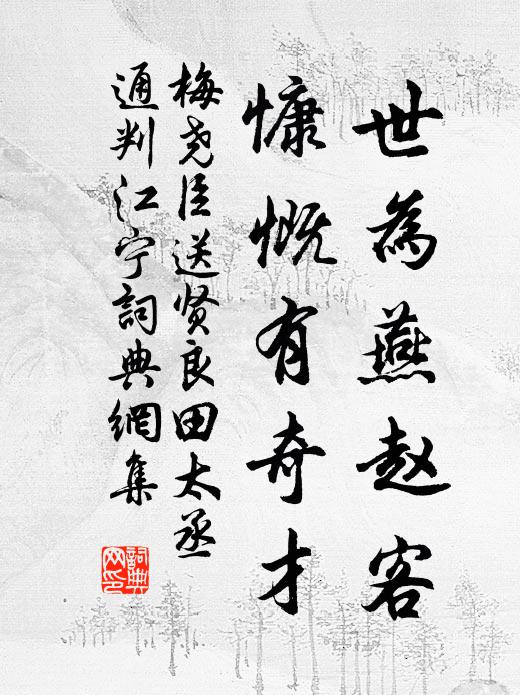 世為燕赵客
慷慨有奇才
梅尧臣送贤良田太丞
通判江宁詞典網集
詞典
网印